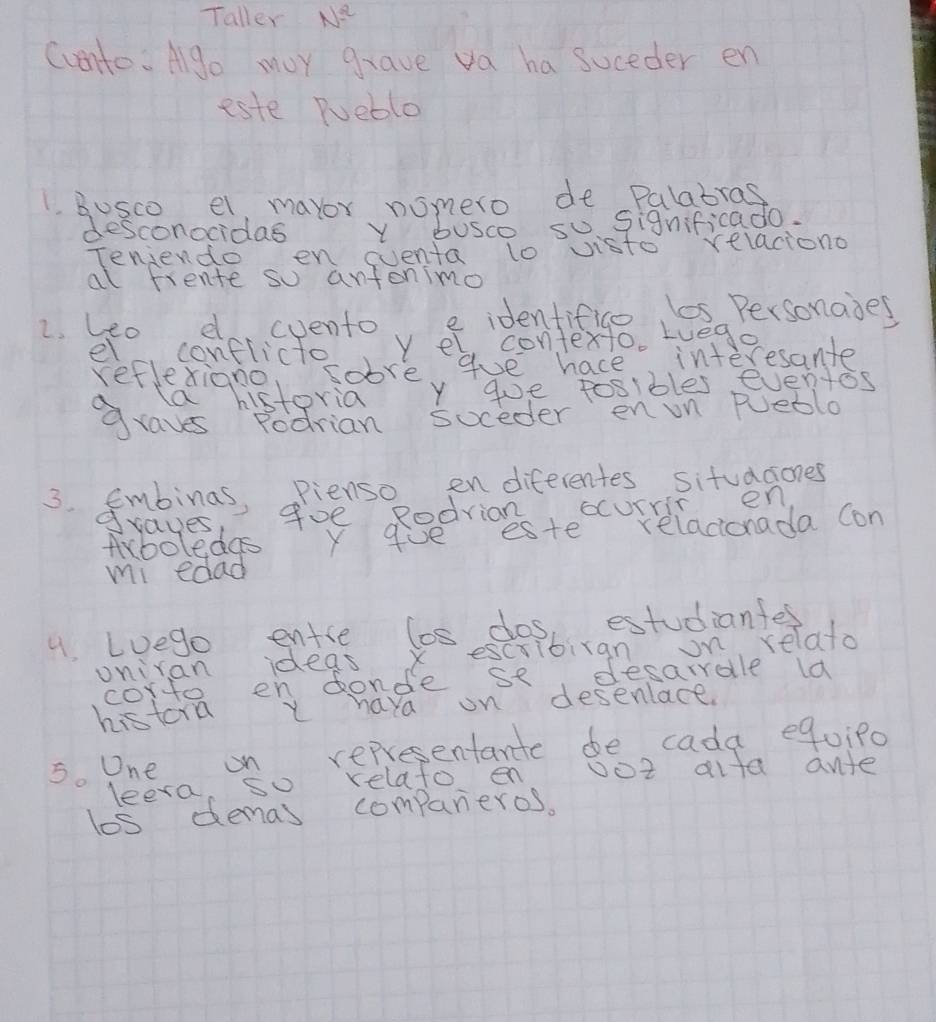 Taller Nº
Cuento: Algo muy grave va ha suceder en
este Pueblo
1. Busco el mayor número de Palabras
desconocidas y busco su significado.
Teniendo en cuenta lo visto relaciono
al frente su antonimo
2. Leo el cuento, e identifico los Personajes,
el conflicto y el contexto. Luego
reflexiono, sobre que hace interesante
a la historia y que posibles eventos
graves Podrian suceder en un pueblo
3. Embinas, Pienso en diferentes situaciones
graves, que Podrian ocurrir en
Arboledas y que este relacionada con
mi edad
4. Luego entre los dos, estudiantes
uniran ideas y escribiran un relato
corto en donde se desarrolle la
historia y haya un desenlace.
5. Une un representante de cada equipo
leera, su relato en voz alta ante
los demas compañeros.